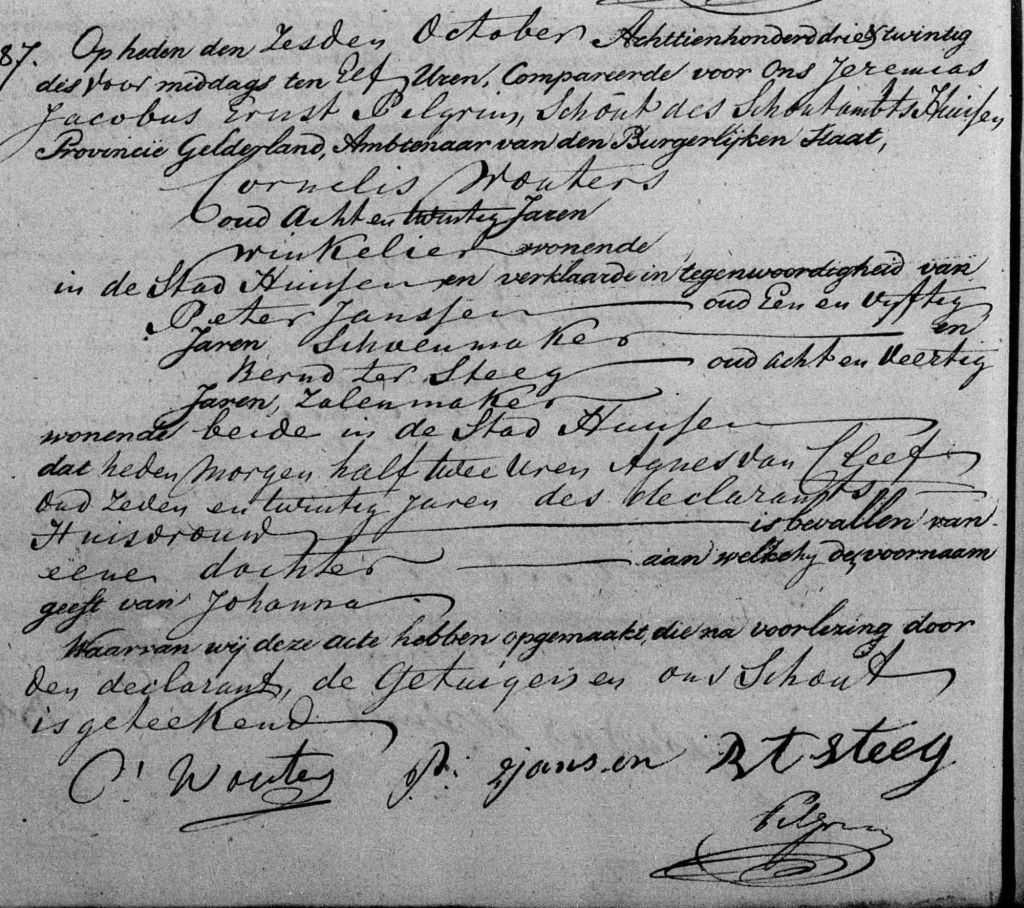 87. Op heden den Zesden October Achttienhonderd drie & twintig
des voor middags ten Elf Uren, Compareerde voor Ons Jeremias
Jacobus Ernst Pelgrim, Schout des Schoutambts Huissen
Provincie Gelderland, Ambtenaar van den Burgerlijken Staat,
Cornelis Wouters
oud Acht en twintig Jaren
winkelier wonende
in de Stad Huissen en verklaarde in tegenwoordigheid van
Peter Janssen oud Een en vyftig
Jaren Schoenmaker en
Bernd ter Steeg oud acht en Veertig
Jaren, Zalenmaker
wonende beide in de Stad Huissen
dat heden Morgen half twee Uren Agnes van Cleef
Oud Zeven en twintig Jaren des declarants
Huisvrouw is bevallen van
eene dochter aan welke hy de voornaam
geeft van Johanna
Waarvan wij deze acte hebben opgemaakt, die na voorlezing door
den declarant, de Getuigen en ons Schout
is geteekend
C. Wouters P. Jansen B t steeg
Pelgrim